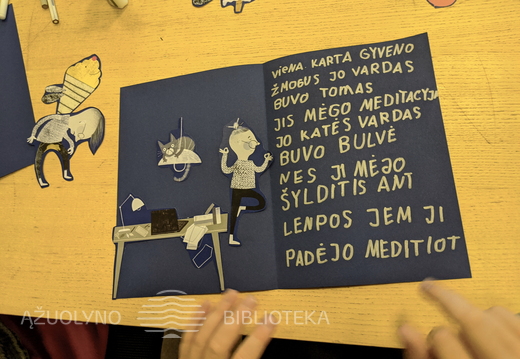 VIENA KARTA GYVENO
ŽMOGUS JO VARDAS
BUVO TOMAS
JIS MĖGO MEDITACYJA
JO KATĖS VARDAS
BUVO BULVĖ
NES JI MĖJO
ŠYLDITIS ANT
LENPOS JEM JI
PADĖJO MEDITIOT
ĄŽUOLYNO BIBLIOTEKA